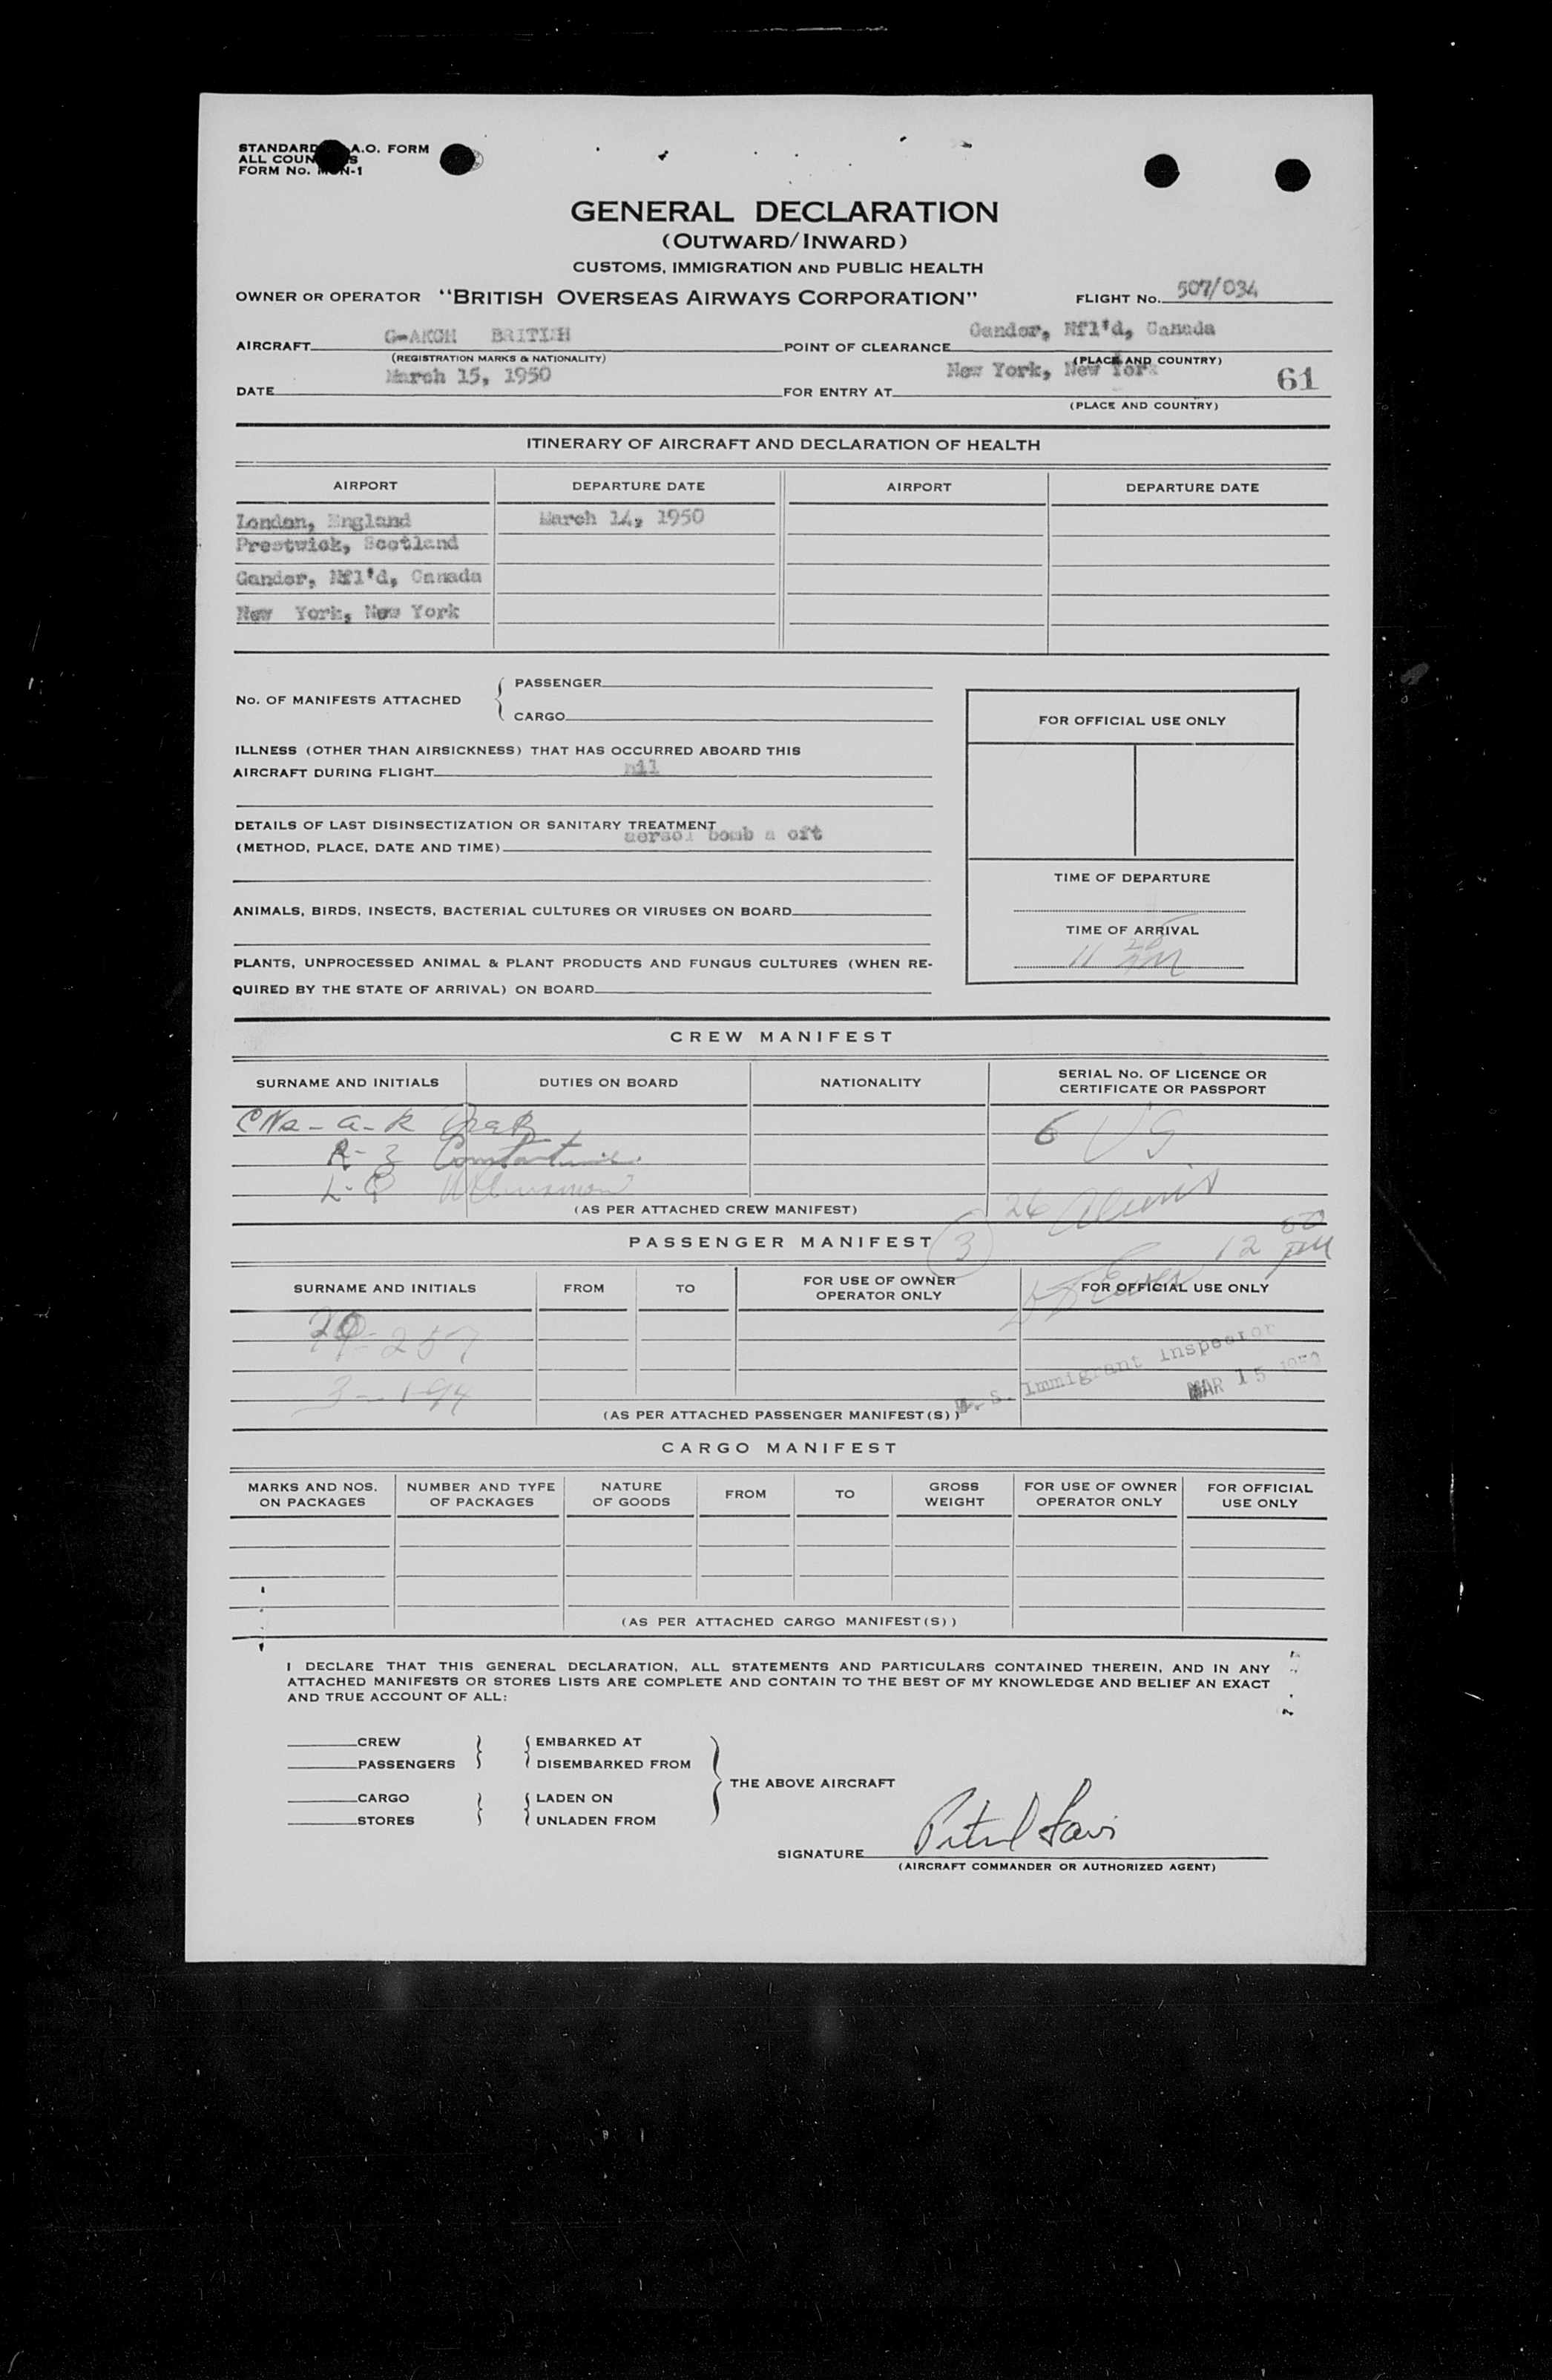 STANDARD A.O. FORM
ALL COUN S
FORM No. N-1
GENERAL DECLARATION
(OUTWARD/INWARD)
CUSTOMS, IMMIGRATION AND PUBLIC HEALTH
OWNER OR OPERATOR "BRITISH OVERSEAS AIRWAYS CORPORATION" FLIGHT No. 507/034
AIRCRAFT G-AKGM BRITISH POINT OF CLEARANCE Gander, Nfl'd, Canada
(REGISTRATION MARKS & NATIONALITY) (PLACE AND COUNTRY)
DATE March 15, 1950 FOR ENTRY AT New York, New York 61
(PLACE AND COUNTRY)
ITINERARY OF AIRCRAFT AND DECLARATION OF HEALTH
AIRPORT DEPARTURE DATE AIRPORT DEPARTURE DATE
London, England March 14, 1950
Prestwick, Scotland
Gander, Nfl'd, Canada
New York, New York
No. OF MANIFESTS ATTACHED
PASSENGER
CARGO
FOR OFFICIAL USE ONLY
ILLNESS (OTHER THAN AIRSICKNESS) THAT HAS OCCURRED ABOARD THIS
AIRCRAFT DURING FLIGHT nil
DETAILS OF LAST DISINSECTIZATION OR SANITARY TREATMENT
(METHOD, PLACE, DATE AND TIME) aersol bomb a oft
TIME OF DEPARTURE
ANIMALS, BIRDS, INSECTS, BACTERIAL CULTURES OR VIRUSES ON BOARD
TIME OF ARRIVAL
11
PLANTS, UNPROCESSED ANIMAL & PLANT PRODUCTS AND FUNGUS CULTURES (WHEN RE-
QUIRED BY THE STATE OF ARRIVAL) ON BOARD
CREW MANIFEST
SURNAME AND INITIALS DUTIES ON BOARD NATIONALITY SERIAL No. OF LICENCE OR CERTIFICATE OR PASSPORT
6
26
(AS PER ATTACHED CREW MANIFEST)
PASSENGER MANIFEST 3 12 50 PM
SURNAME AND INITIALS FROM TO FOR USE OF OWNER OPERATOR ONLY FOR OFFICIAL USE ONLY
257
3-194
U. S. Immigrant Inspector
MAR 15 1950
(AS PER ATTACHED PASSENGER MANIFEST(S))
CARGO MANIFEST
MARKS AND NOS. ON PACKAGES NUMBER AND TYPE OF PACKAGES NATURE OF GOODS FROM TO GROSS WEIGHT FOR USE OF OWNER OPERATOR ONLY FOR OFFICIAL USE ONLY
(AS PER ATTACHED CARGO MANIFEST(S))
I DECLARE THAT THIS GENERAL DECLARATION, ALL STATEMENTS AND PARTICULARS CONTAINED THEREIN, AND IN ANY
ATTACHED MANIFESTS OR STORES LISTS ARE COMPLETE AND CONTAIN TO THE BEST OF MY KNOWLEDGE AND BELIEF AN EXACT
AND TRUE ACCOUNT OF ALL:
CREW EMBARKED AT
PASSENGERS DISEMBARKED FROM
THE ABOVE AIRCRAFT
CARGO LADEN ON
STORES UNLADEN FROM
SIGNATURE
(AIRCRAFT COMMANDER OR AUTHORIZED AGENT)